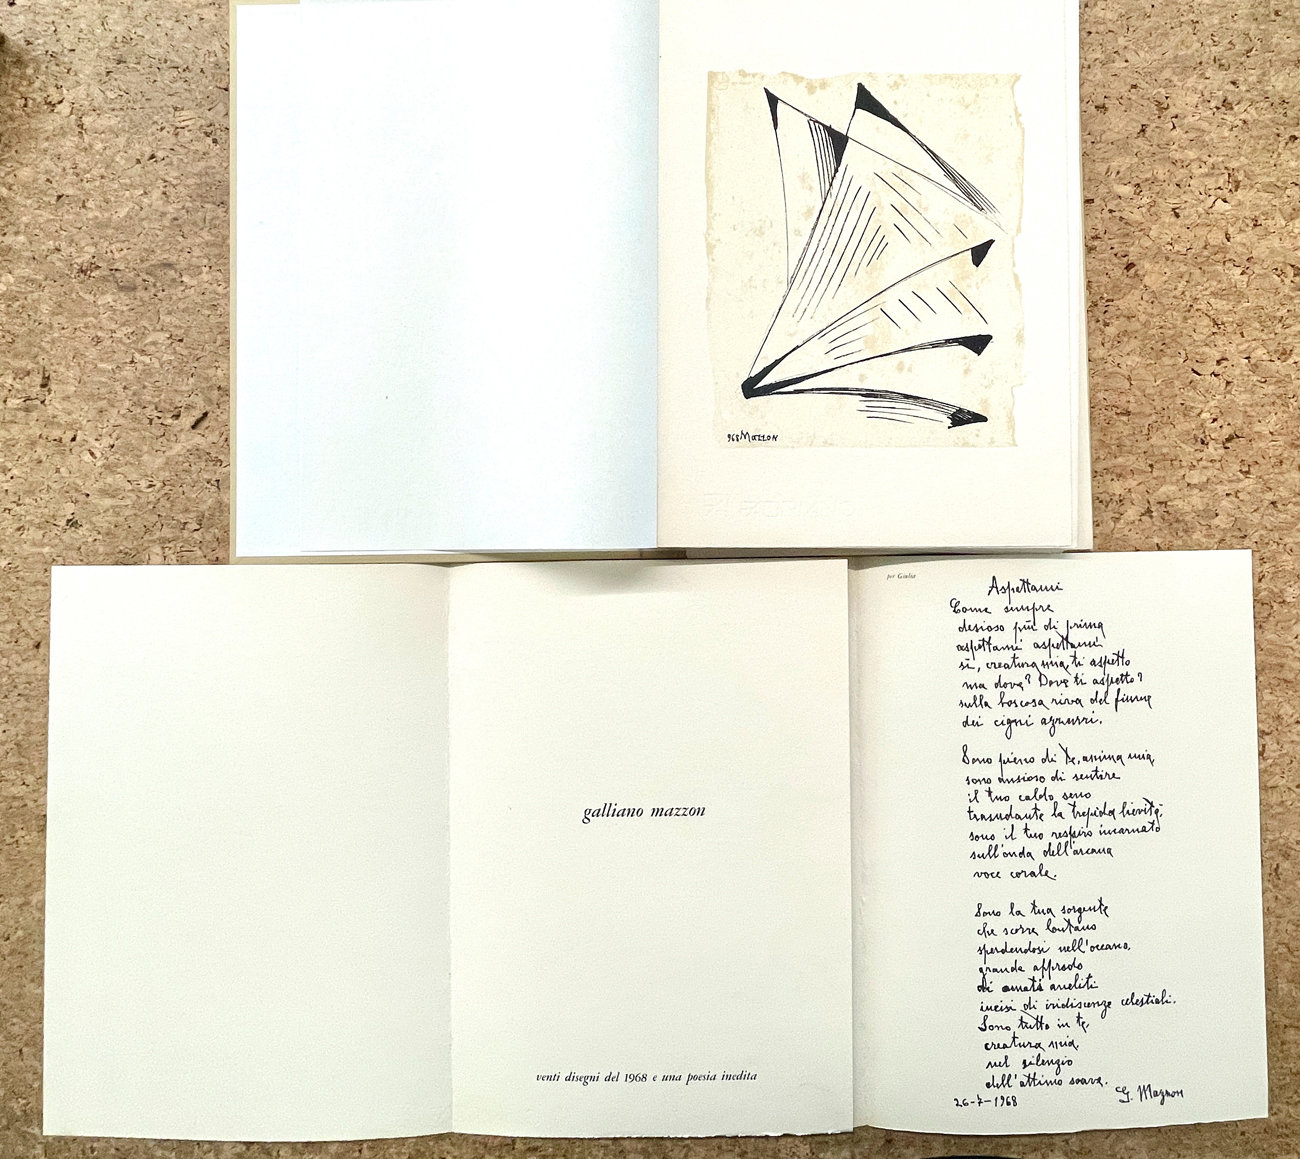 968 Mazzon
galliano mazzon
venti disegni del 1968 e una poesia inedita
per Giulia
Aspettami
Come sempre
desioso più di prima
aspettami aspettami
sì, creatura mia, ti aspetto
ma dove? Dove ti aspetto?
sulla boscosa riva del fiume
dei cigni azzurri.
Sono pieno di te, anima mia,
sono ansioso di sentire
il tuo caldo seno
trasudante la trepida lievità,
sono il tuo respiro incarnato
sull'onda dell'arcana
voce corale.
Sono la tua sorgente
che scorre lontano
sperdendosi nell'oceano,
grande approdo
di amati aneliti
incisi di iridiscenze celestiali.
Sono tutto in te,
creatura mia,
nel silenzio
dell'attimo soave.
26-7-1968 G. Mazzon